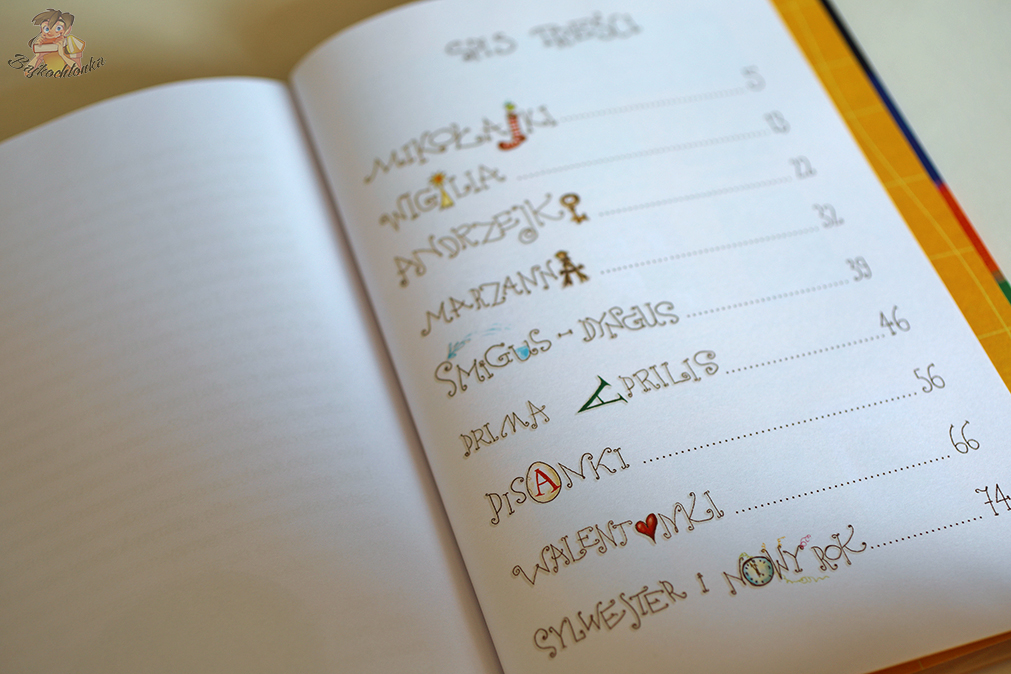 Bajkochłonka
SPIS TREŚCI
MIKOŁAJKI ........ 5
WIGILIA ........ 13
ANDRZEJKI ........ 22
MARZANNA ........ 32
ŚMIGUS - DYNGUS ........ 39
PRIMA APRILIS ........ 46
PISANKI ........ 56
WALENT♥NKI ........ 66
SYLWESTER I NOWY ROK ........ 74